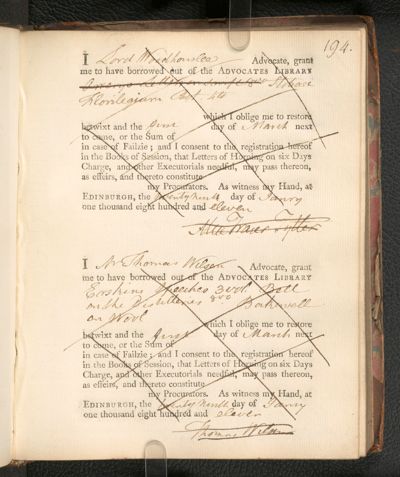 194.
I Lord Woodhouselee Advocate, grant
me to have borrowed out of the ADVOCATES LIBRARY
Stobaei
Florilegium
which I oblige me to restore
betwixt and the first day of March next
to come, or the Sum of
in case of Failzie; and I consent to the registration hereof
in the Books of Session, that Letters of Horning on six Days
Charge, and other Executorials needful, may pass thereon,
as effeirs, and thereto constitute
my Procurators. As witness my Hand, at
EDINBURGH, the twenty ninth day of Janry
one thousand eight hundred and eleven
Alex Fraser Tytler
I Mr Thomas Wilson Advocate, grant
me to have borrowed out of the ADVOCATES LIBRARY
Erskine Speeches 3 vol. Bell
on the Distilleries 8vo Bakewell
on Wool
which I oblige me to restore
betwixt and the first day of March next
to come, or the Sum of
in case of Failzie; and I consent to the registration hereof
in the Books of Session, that Letters of Horning on six Days
Charge, and other Executorials needful, may pass thereon,
as effeirs, and thereto constitute
my Procurators. As witness my Hand, at
EDINBURGH, the twenty ninth day of Janry
one thousand eight hundred and eleven
Thomas Wilson